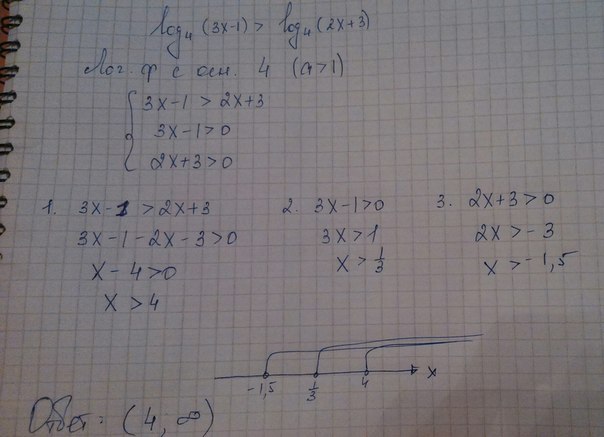 log₄(3x-1) > log₄(2x+3)
Лог. ф с осн. 4 (a>1)
3x-1 > 2x+3
3x-1>0
2x+3>0
1. 3x-1 >2x+3
3x-1-2x-3>0
x-4>0
x >4
2. 3x-1>0
3x>1
x > 1/3
3. 2x+3>0
2x>-3
x >-1,5
-1,5 1/3 4 x
Ответ: (4, ∞)